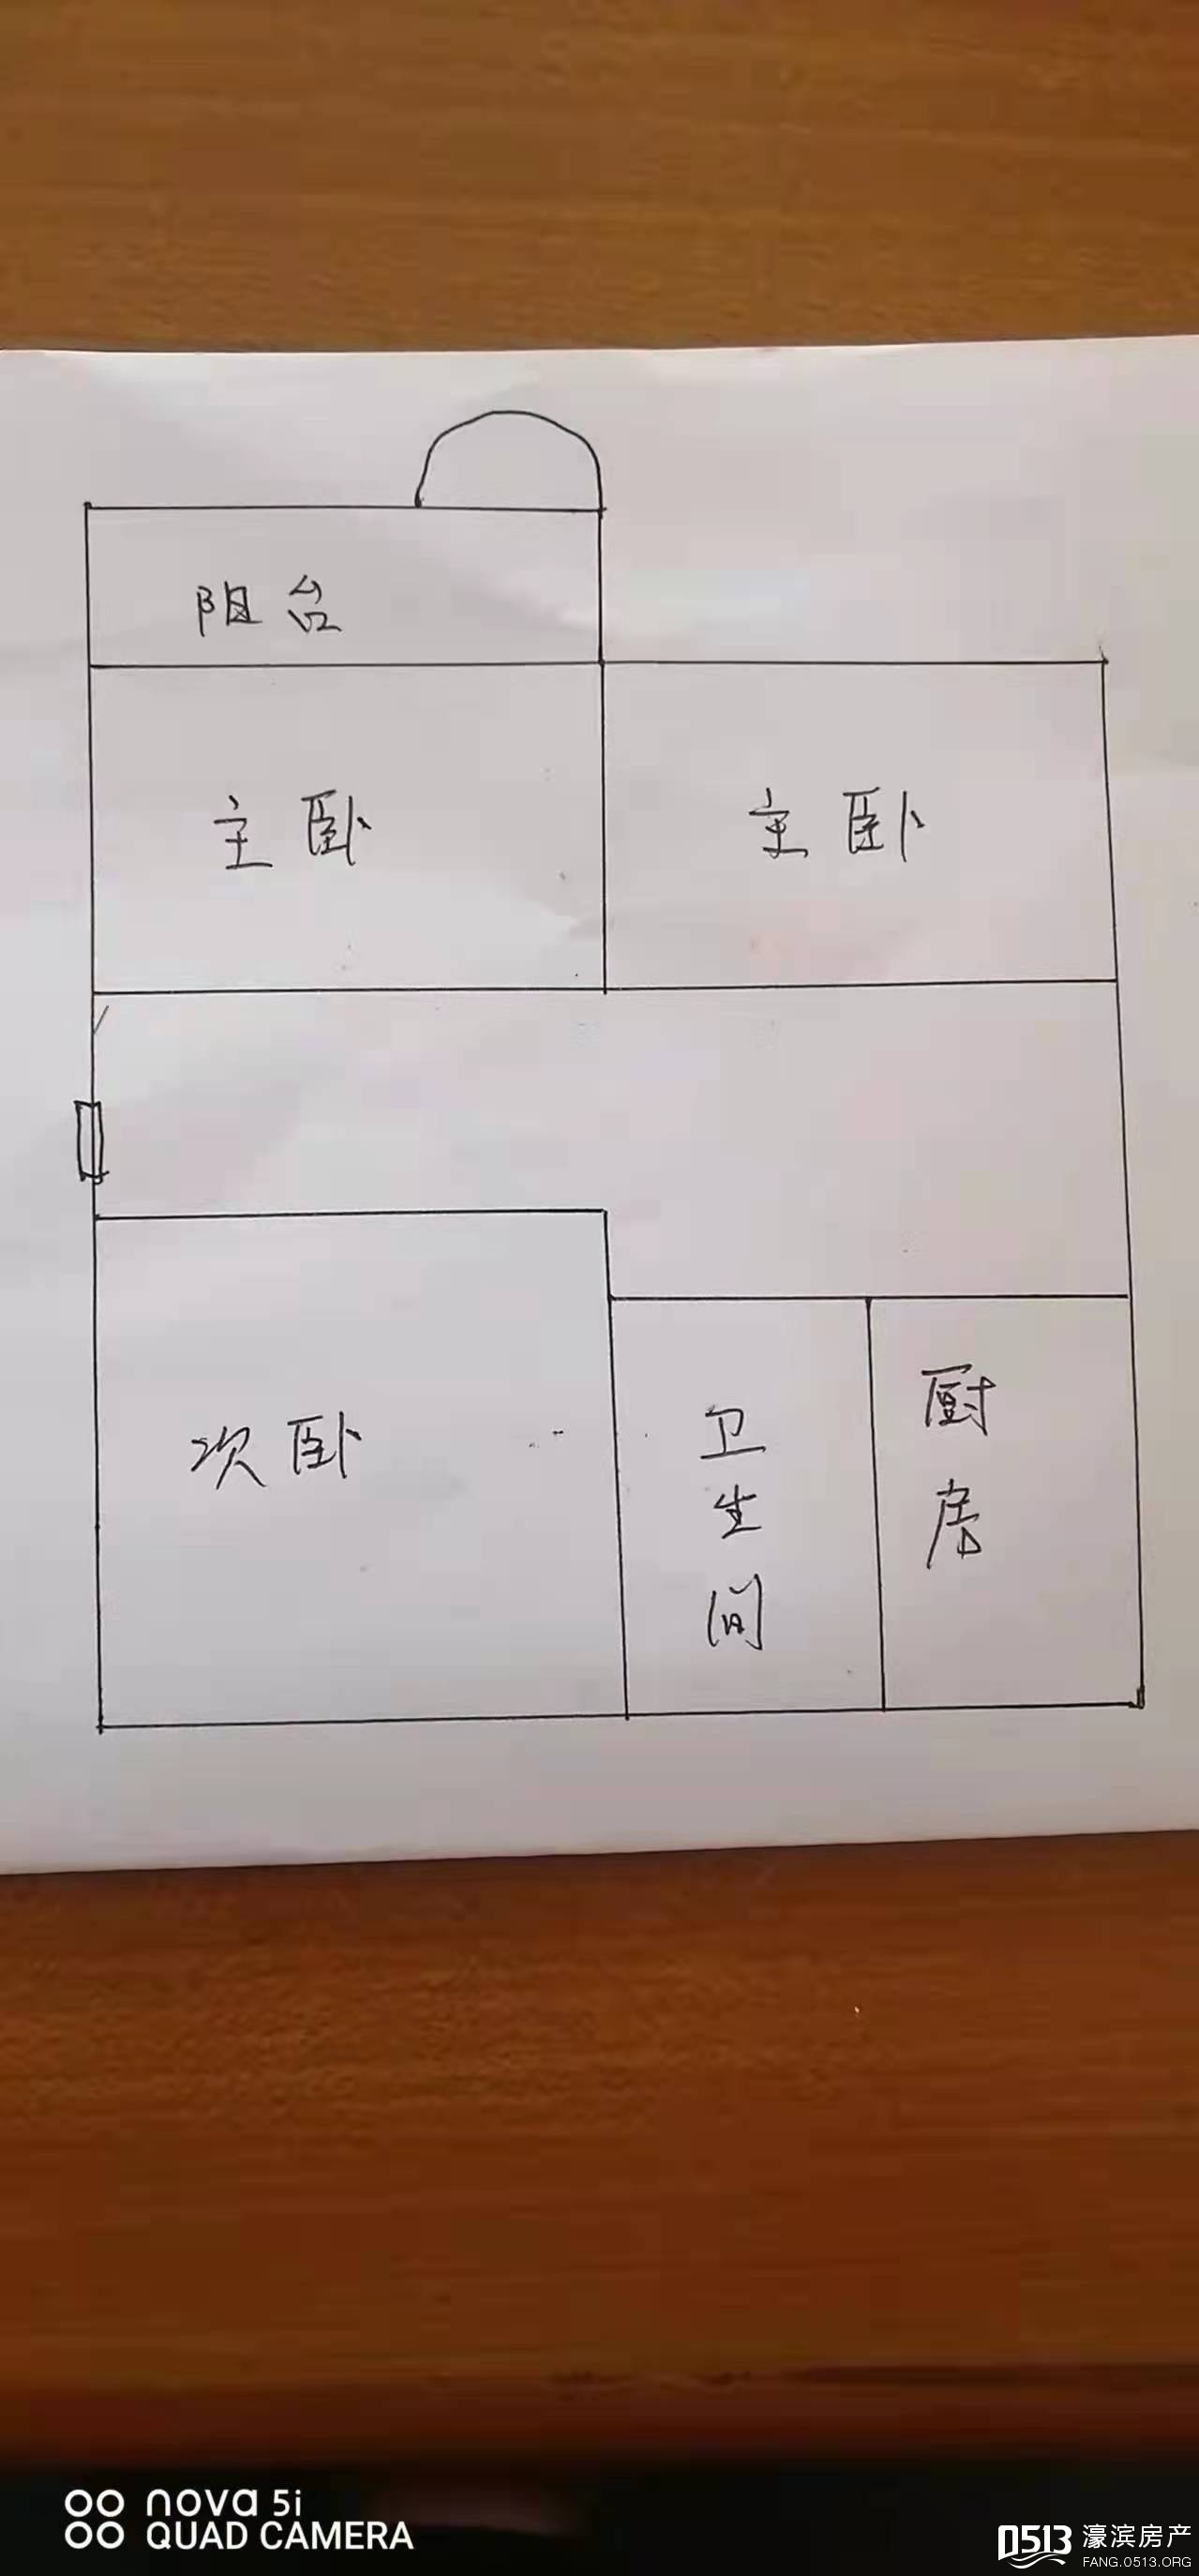 阳台
主卧
主卧
次卧
卫生间
厨房
nova 5i
QUAD CAMERA
0513 濠滨房产
FANG.0513.ORG